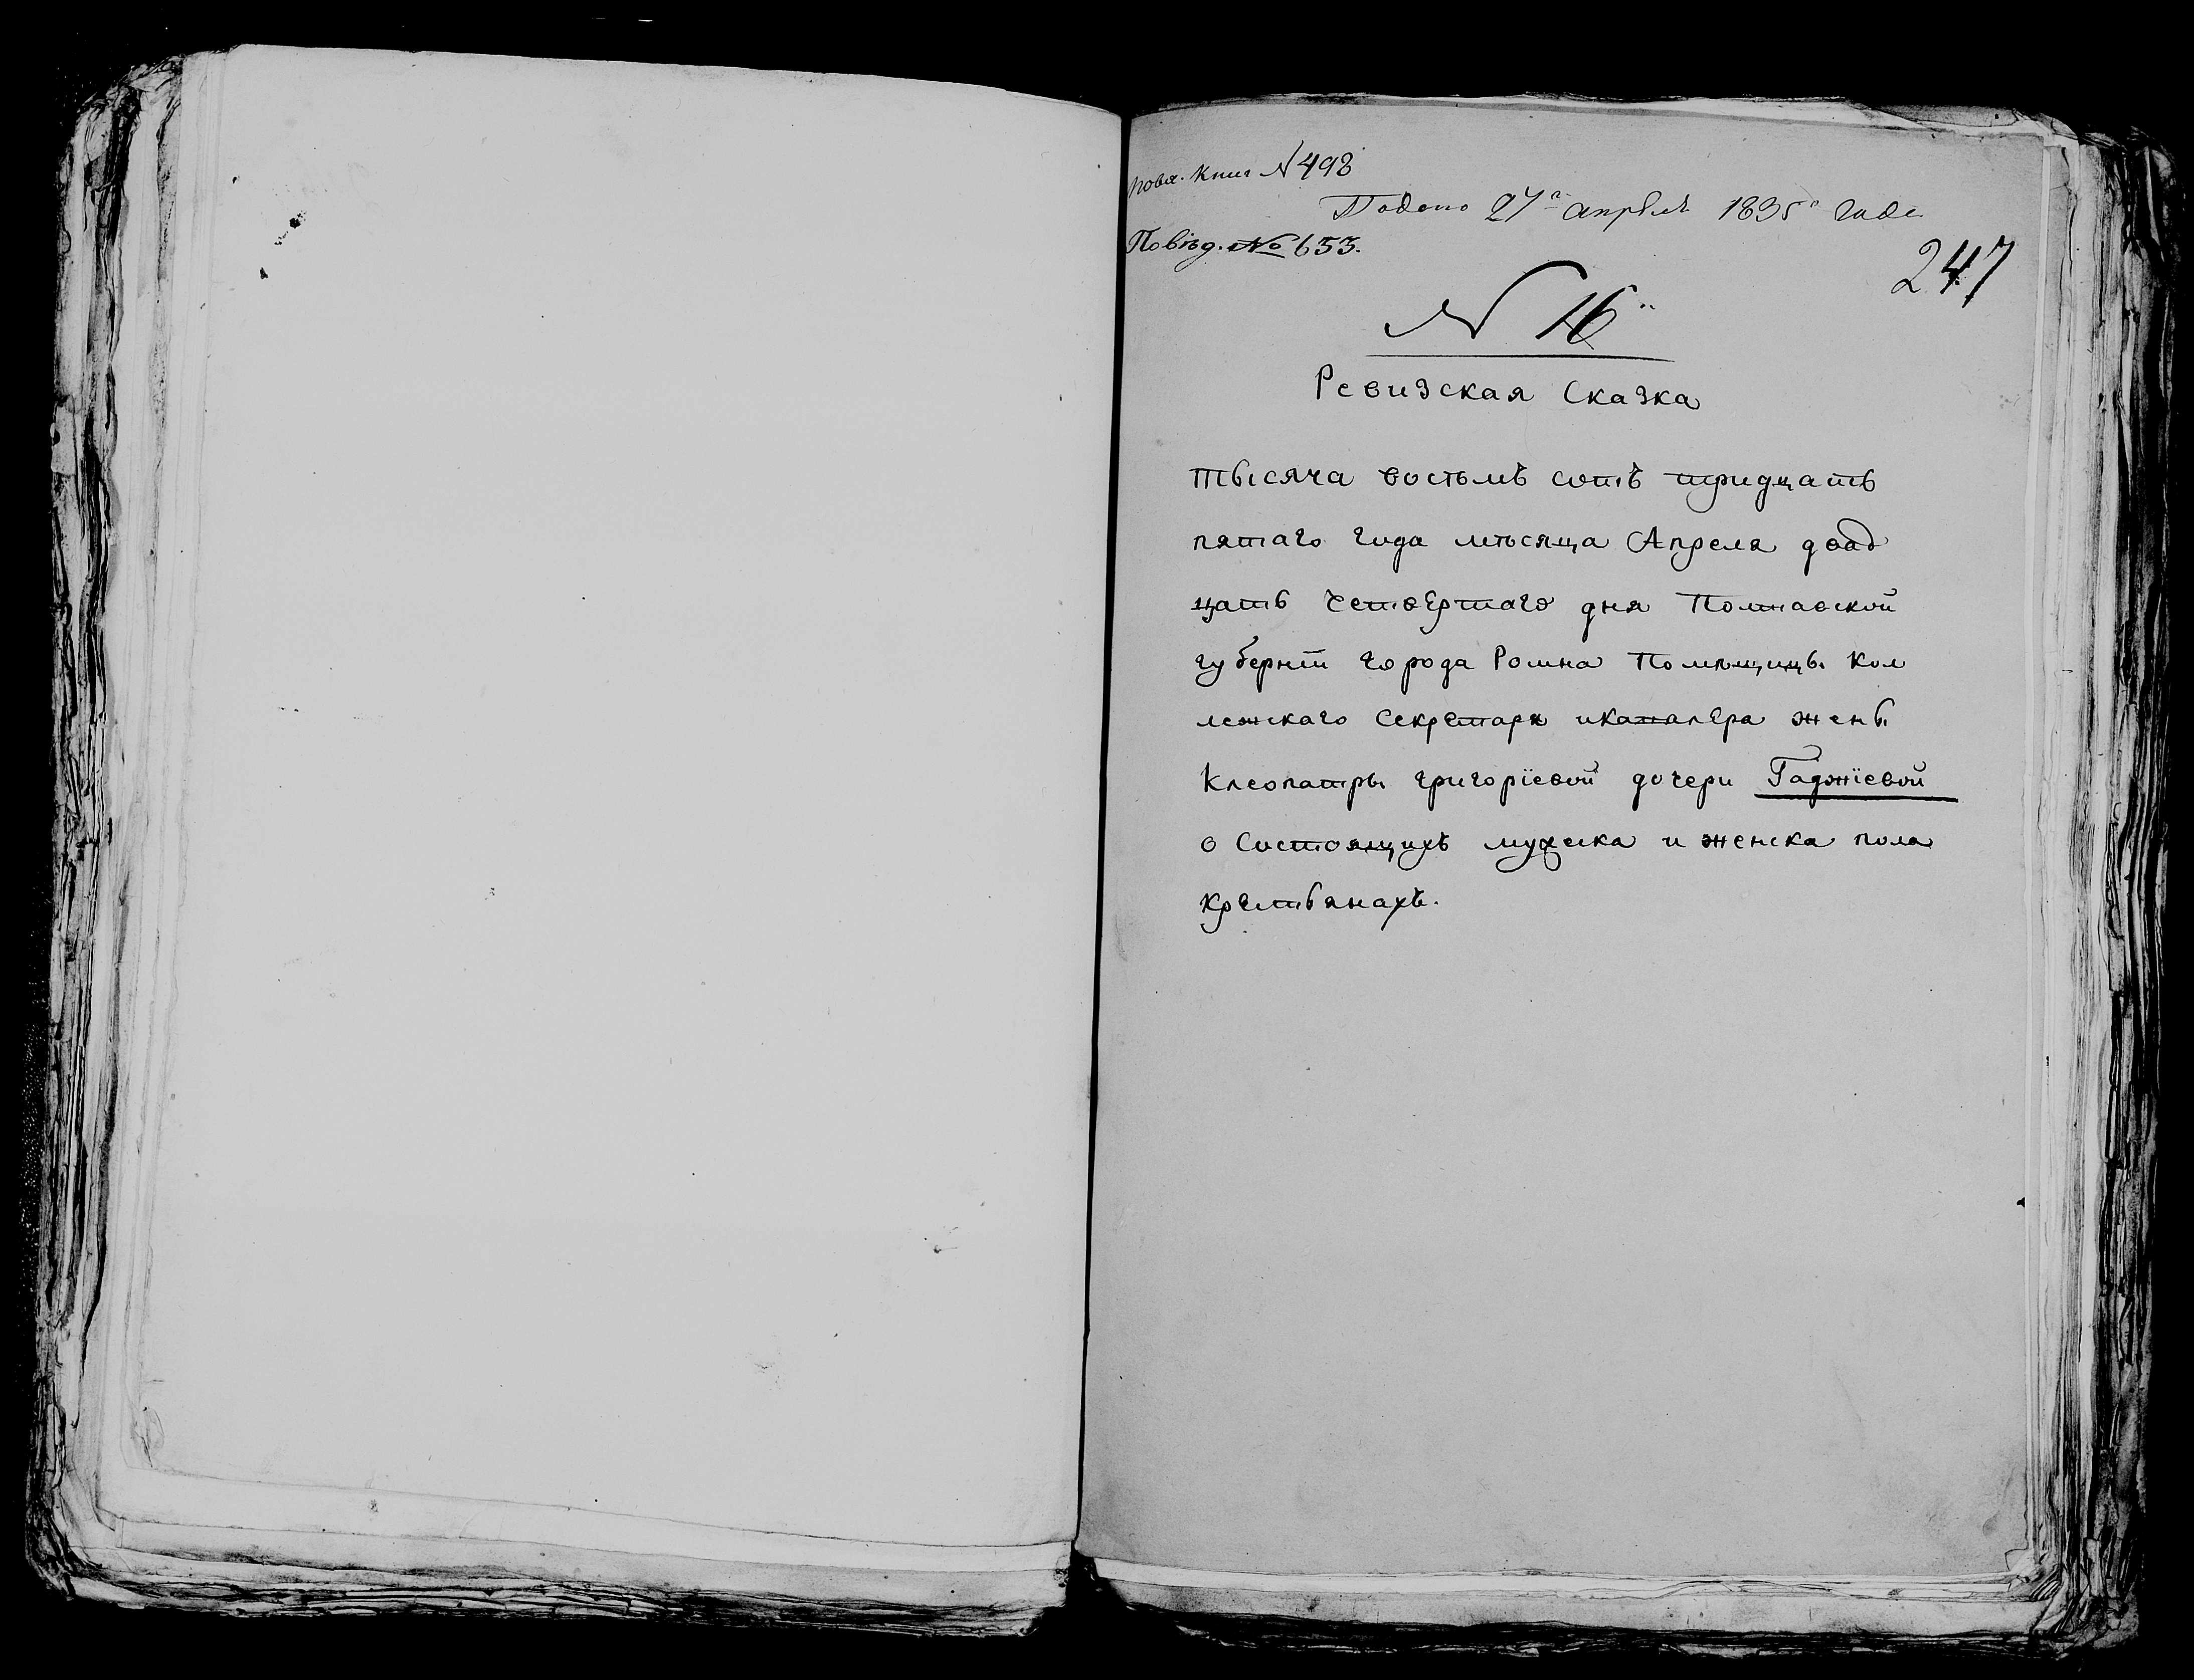 пова. Книг N 498
Подано 27го апреля 1835го года
По вѣд. № 653.
247
N 16й
Ревизская Сказка
тысяча востьмъ сотъ тридцать
пятаго года мѣсяца Апреля двад
цать Четвертаго дня Полтавской
губерніи города Ромна Помѣщицы Кол
лежскаго Секретаря икавалера жены
Клеопатры григоріевой дочери Гаджіевой
о Состоящихъ мужска и женска пола
крестьянахъ.